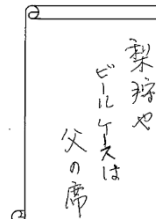 梨狩や
ビールケースは
父の席